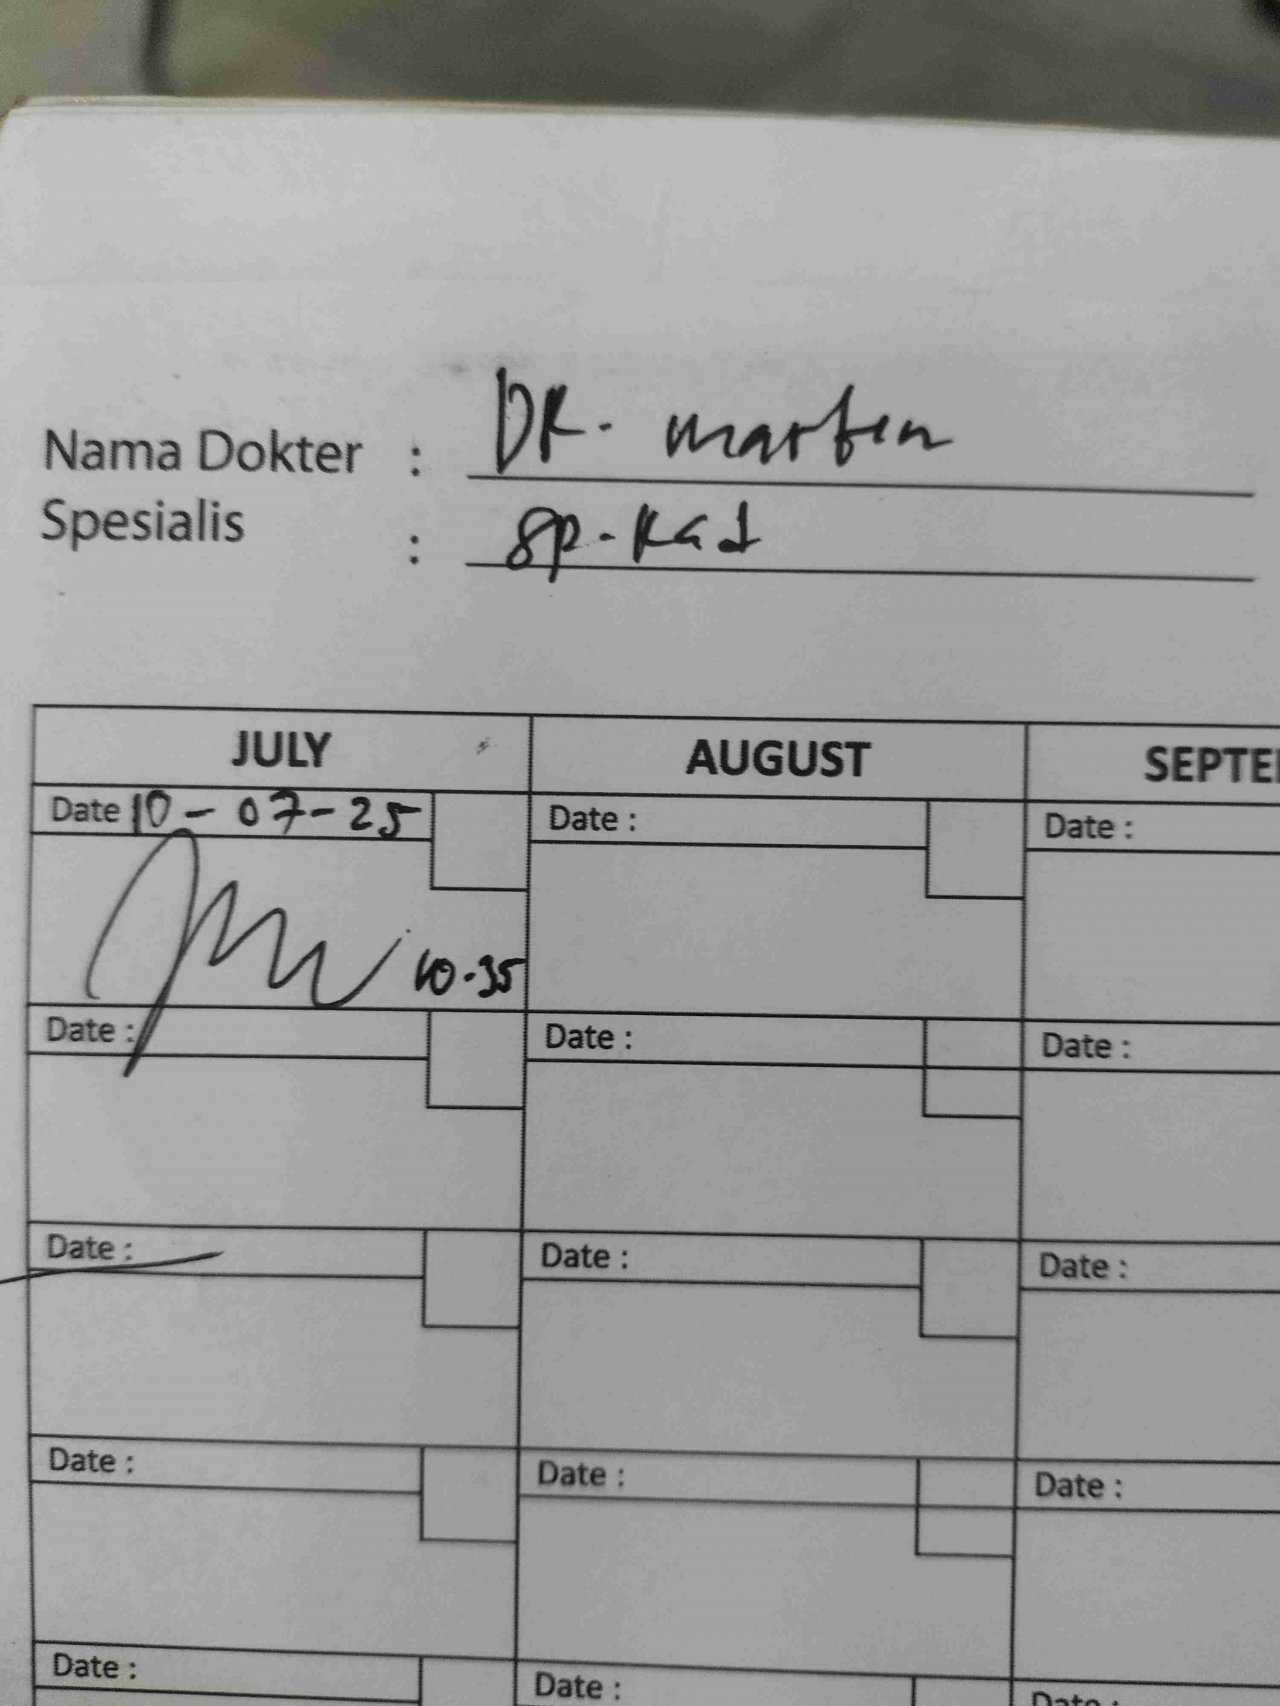 Nama Dokter : DR. marten
Spesialis : Sp. Kad
JULY AUGUST SEPTE
Date 10-07-25 Date : Date :
10.35
Date : Date : Date :
Date : Date : Date :
Date : Date : Date :
Date : Date : Date :